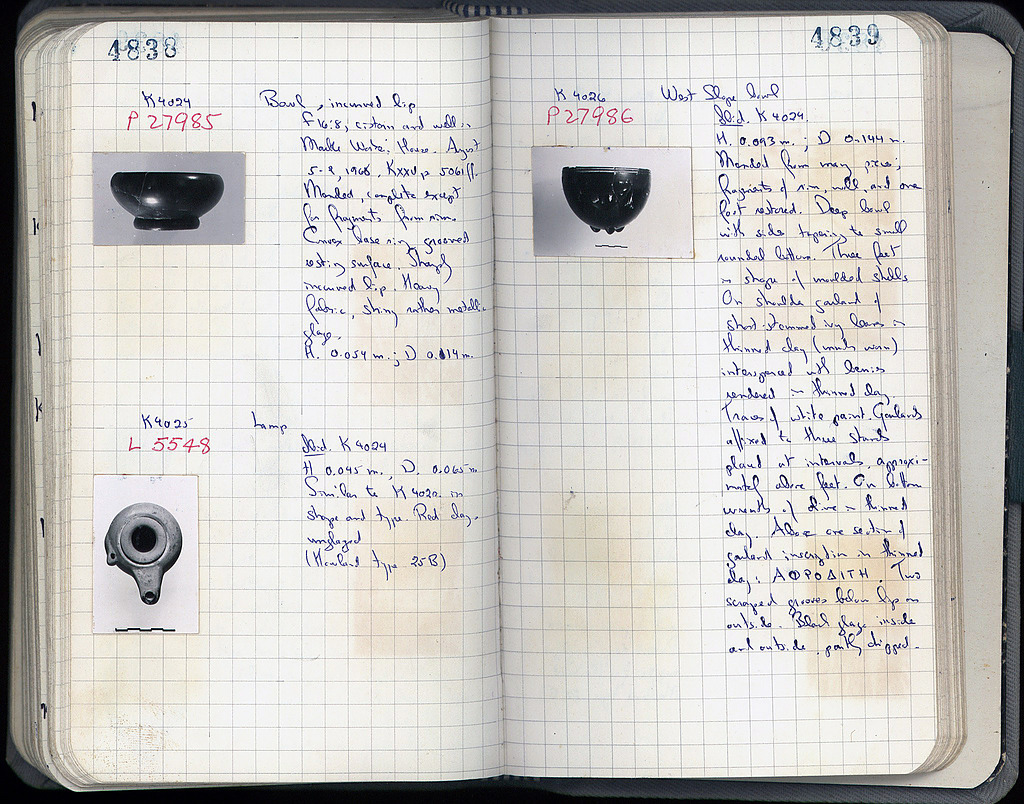 4838
K 4024
P 27985
Bowl, incurved lip
F 16:8, cistern and well in
Marble Worker's House. August
5-8, 1968, KXXV, p. 5061 ff.
Mended, complete except
for fragments from rim.
Convex base ring, grooved
resting surface. Sharply
incurved lip. Heavy
fabric, shiny rather metallic
glaze.
H. 0.054 m.; D. 0.114 m.
K 4025
L 5548
Lamp
Ibid. K 4024
H. 0.045 m., D. 0.065 m
Similar to K 4020 in
shape and type. Red clay,
unglazed
(Howland type 25B)
4839
K 4026
P 27986
West Slope bowl
Ibid. K 4024.
H. 0.093 m.; D 0.144 m.
Mended from many pieces;
fragments of rim, wall, and one
foot restored. Deep bowl
with sides tapering to small
rounded bottom. Three feet
in shape of moulded shells
On shoulder garland of
short-stemmed ivy leaves in
thinned clay (much worn)
interspersed with berries
rendered in thinned clay.
Traces of white paint. Garlands
affixed to three stands
placed at intervals, approxi-
mately above feet. On bottom
wreath of olive in thinned
clay. Above one section of
garland inscription in thinned
clay: ΑΦΡΟΔΙΤΗ. Two
scraped grooves below lip on
outside. Black glaze inside
and outside, partly chipped.